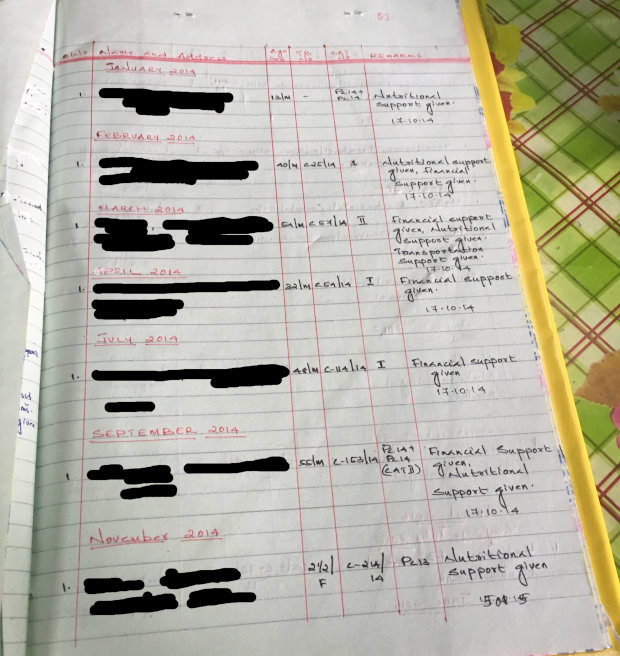 53
Name and Address Age TB Cat Remarks
JANUARY 2014
1. 12/M - PC 14+ Nutritional
PC 14 support given.
17.10.14
FEBRUARY 2014
1. 40/M C25/14 I Nutritional support
given, Financial
support given.
17.10.14
MARCH 2014
1 54/M C 54/14 II Financial support
given, Nutritional
support given.
Transportation
support given.
17.10.14
APRIL 2014
1. 32/M C59/14 I Financial support
given.
17.10.14
JULY 2014
1. 48/M C-114/14 I Financial support
given
17.10.14
SEPTEMBER 2014
1 55/M C-153/14 PC 14+ Financial Support
PC 14 given,
(CAT II) Nutritional
support given.
17.10.14
November 2014
1. 2½/ C-214/ PC 13 Nutritional
F 14 support given